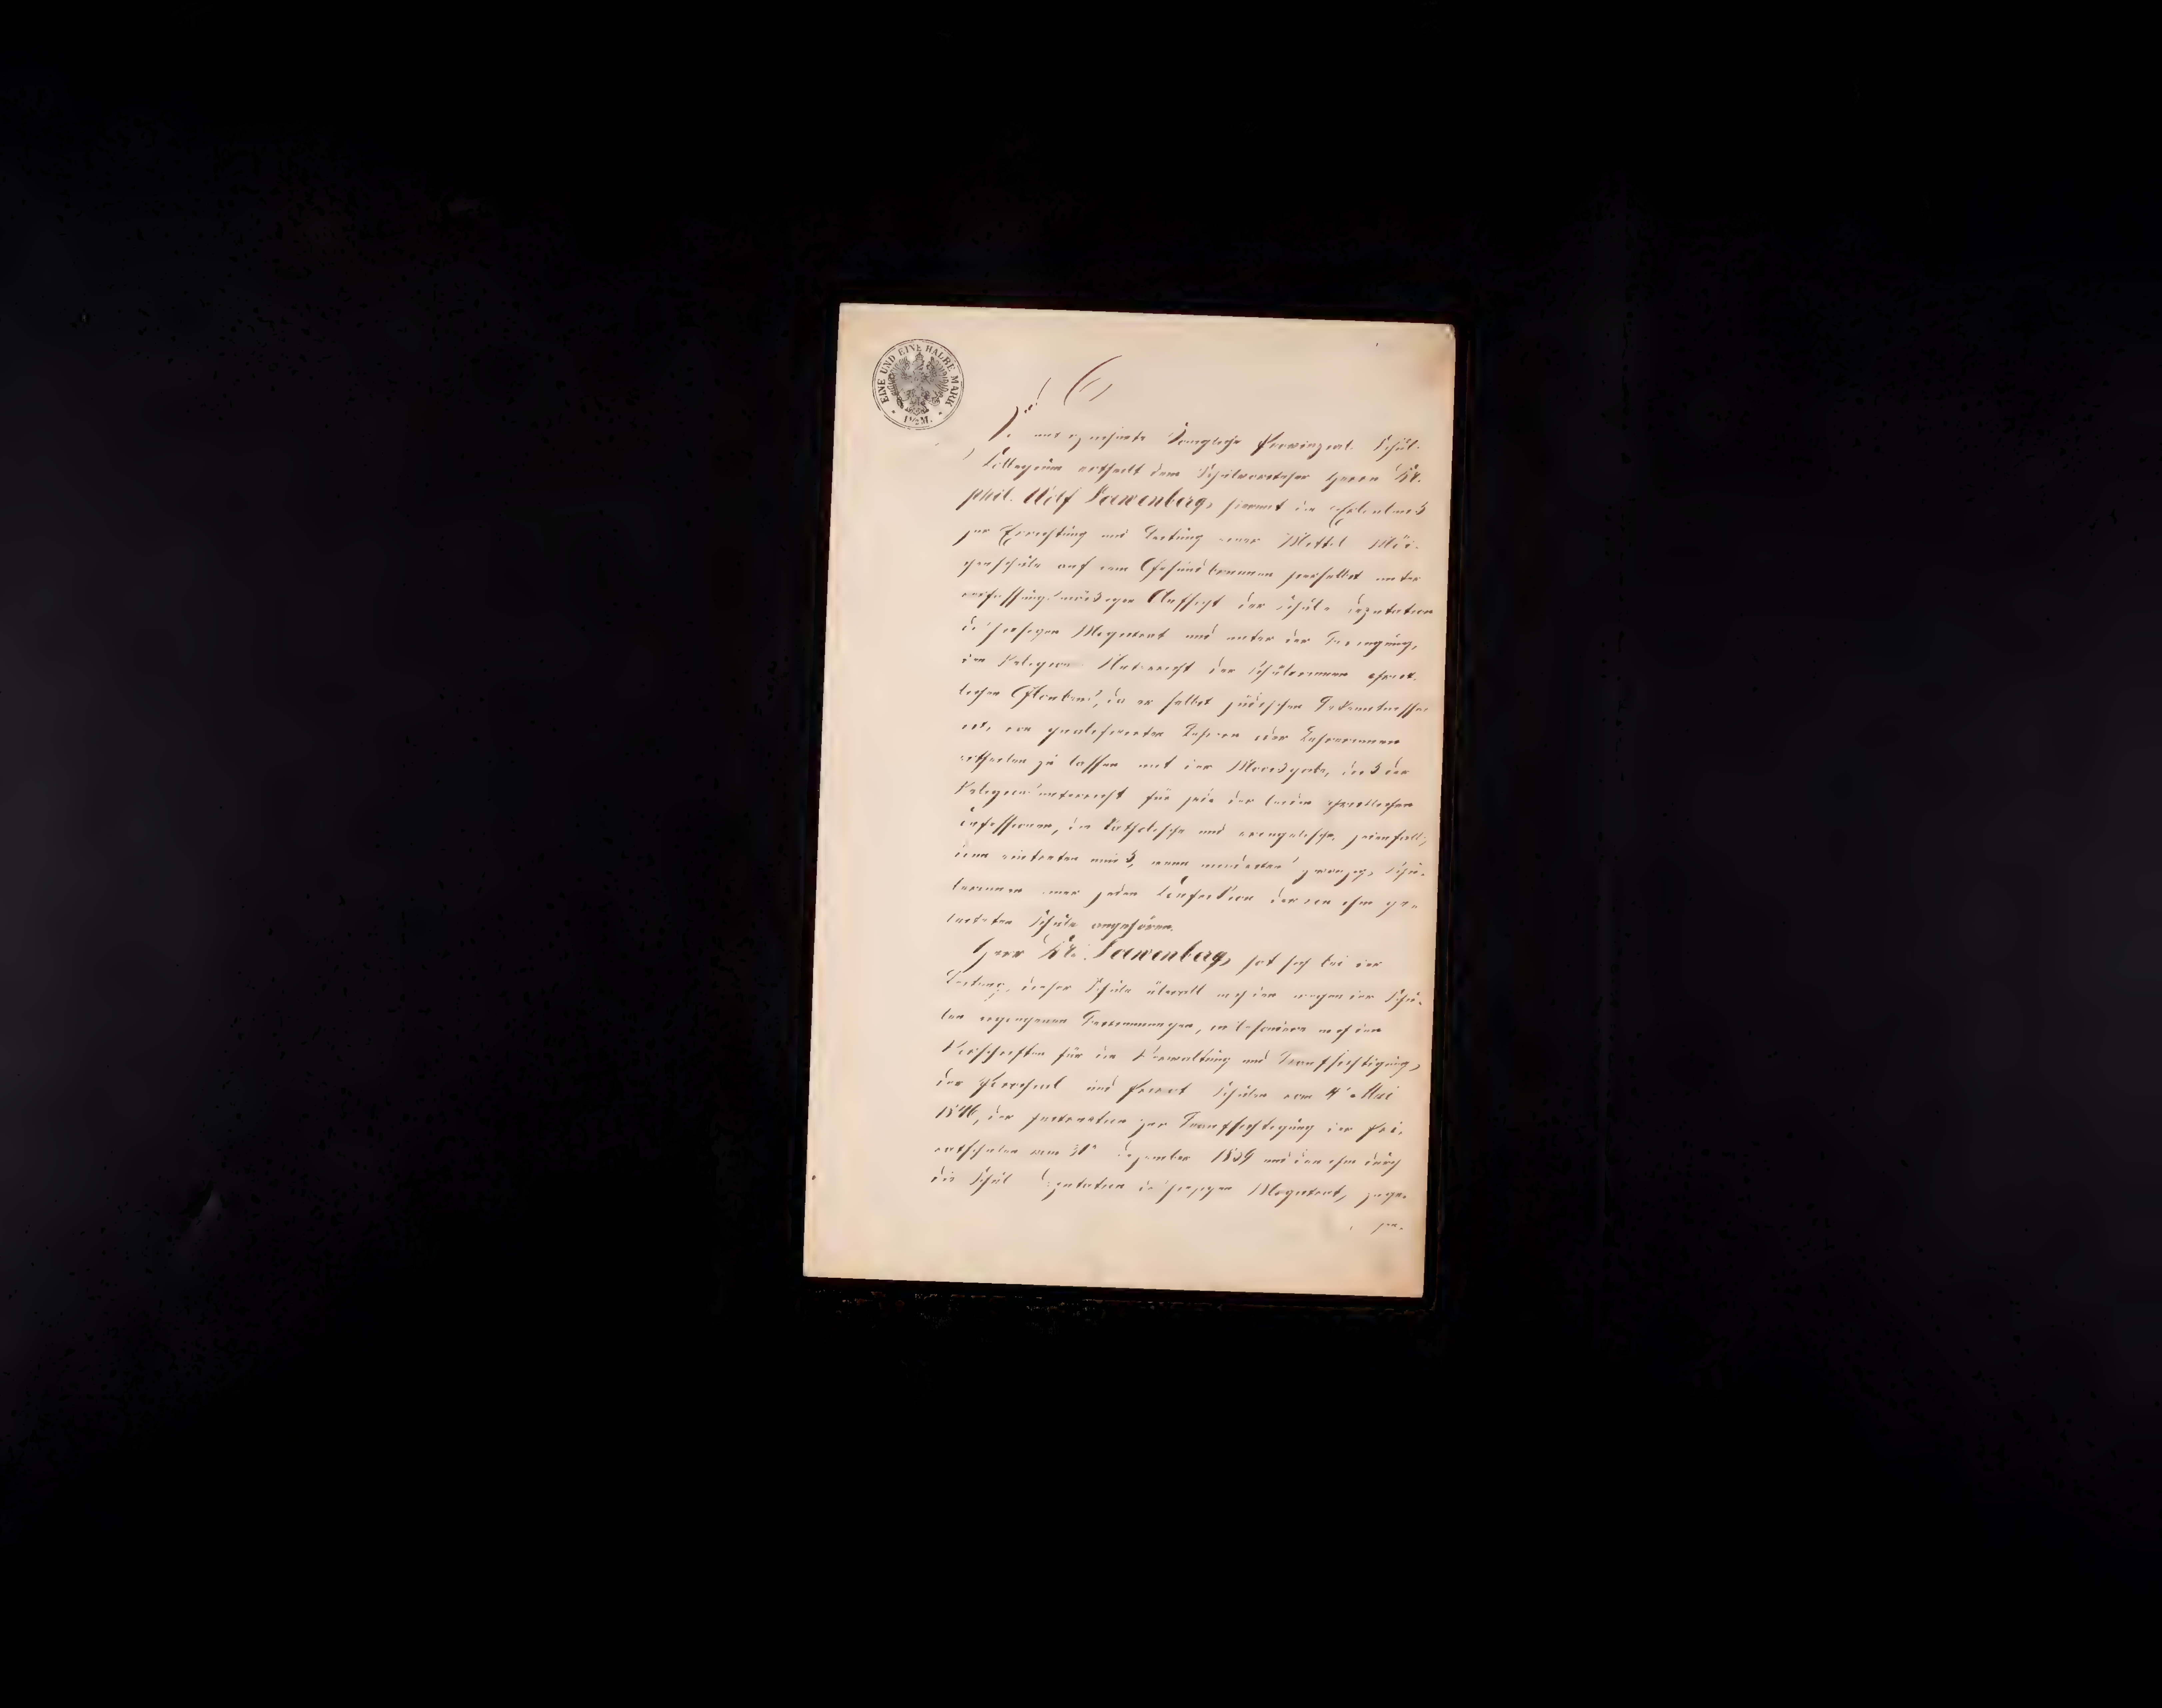 EINE UND EINE HALBE MARK
1½ M.
unterzeichnete Königliche Provinzial-Schul-
Collegium ertheilt dem Schulvorsteher Herrn Dr.
phil. Adolf Loewenberg, hiermit die Erlaubniß
zur Errichtung und Leitung einer Mittel-Mäd-
chenschule auf dem Gesundbrunnen hierselbst unter
verfassungsmäßiger Aufsicht der Schul-Deputation
des hiesigen Magistrats und unter der Bedingung,
den Religions-Unterricht der Schülerinnen christ-
lichen Glaubens, da er selbst jüdischen Bekenntnisses
ist, von qualificirten Lehrern oder Lehrerinnen
ertheilen zu lassen mit der Maaßgabe, daß der
Religionsunterricht für jede der beiden christlichen
Confessionen, die katholische und evangelische, jedenfalls
dann eintreten muß, wenn mindestens zwanzig Schü-
lerinnen einer jeden Confession der von ihm ge-
leiteten Schule angehören.
Herr Dr. Loewenberg, hat sich bei der
Leitung dieser Schule überall nach den wegen der Schu-
len ergangenen Bestimmungen, insbesondere nach den
Vorschriften für die Verwaltung und Beaufsichtigung
der Parochial- und Privat-Schulen vom 4. Mai
der Instruction zur Beaufsichtigung der Pri-
vatschulen vom 31. Dezember 1839 und den ihm durch
die Schul-Deputation des hiesigen Magistrats, zuge-